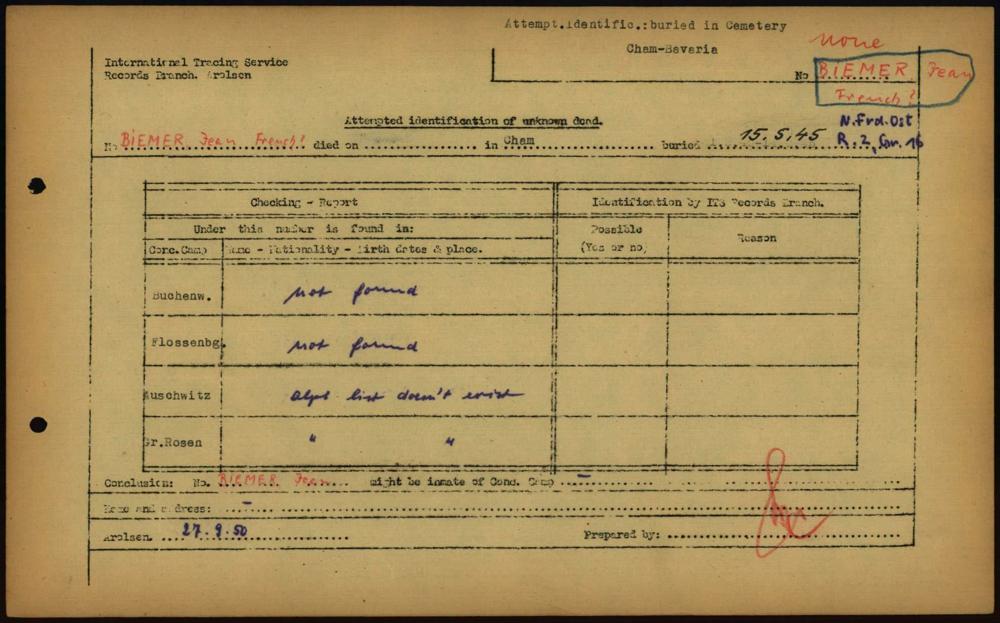 Attempt.Identific.: buried in Cemetery
Cham-Bavaria
none
International Tracing Service
Records Branch. Arolsen
No BIEMER Jean
French?
Attempted identification of unknown dead.
N.Frd.Ost
No BIEMER Jean French? died on in Cham buried 15.5.45 R. 2, Gr. 16
Checking - Report
Identification by ITS Records Branch.
Under this number is found in:
Possible
(Yes or no)
Reason
Conc.Camp Name - Nationality - Birth dates & place.
Buchenw. not found
Flossenbg. not found
Auschwitz alph list doesn't exist
Gr.Rosen " "
Conclusion: No. BIEMER Jean might be inmate of Conc. Camp -
Name and address: -
Arolsen. 27.9.50
Prepared by: